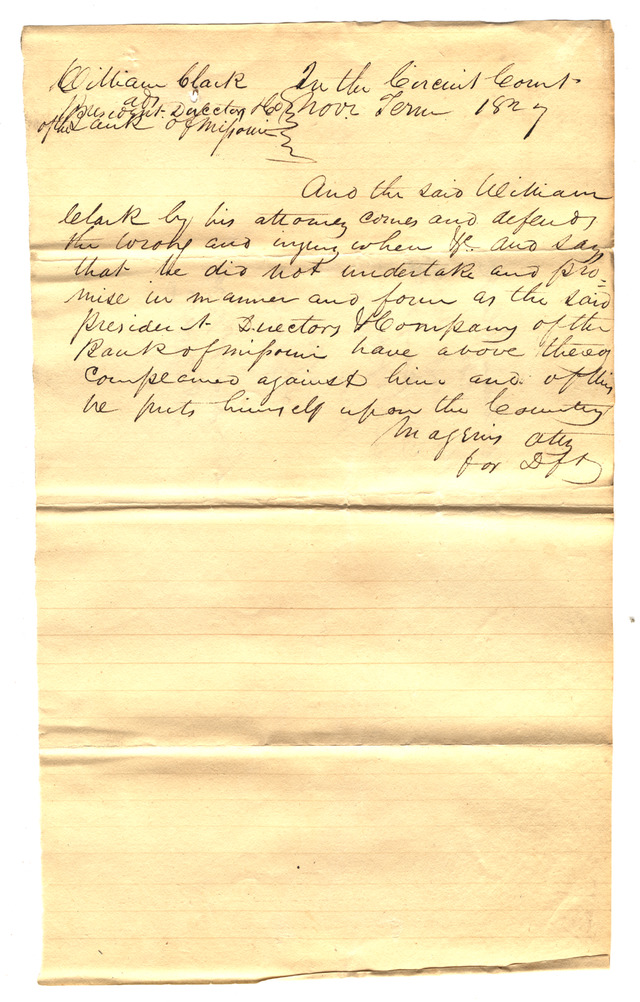 William Clark In the Circuit Court
ads
President Directors &Co Novr. Term 1827
of the Bank of Missouri
And the said William
Clark by his attorney comes and defends
the wrong and injury when &c. and say
that he did not undertake and pro=
mise in manner and form as the said
President Directors & Company of the
Bank of Missouri have above thereof
complained against him and of this
he puts himself upon the Country
Magenis atty
for Dft